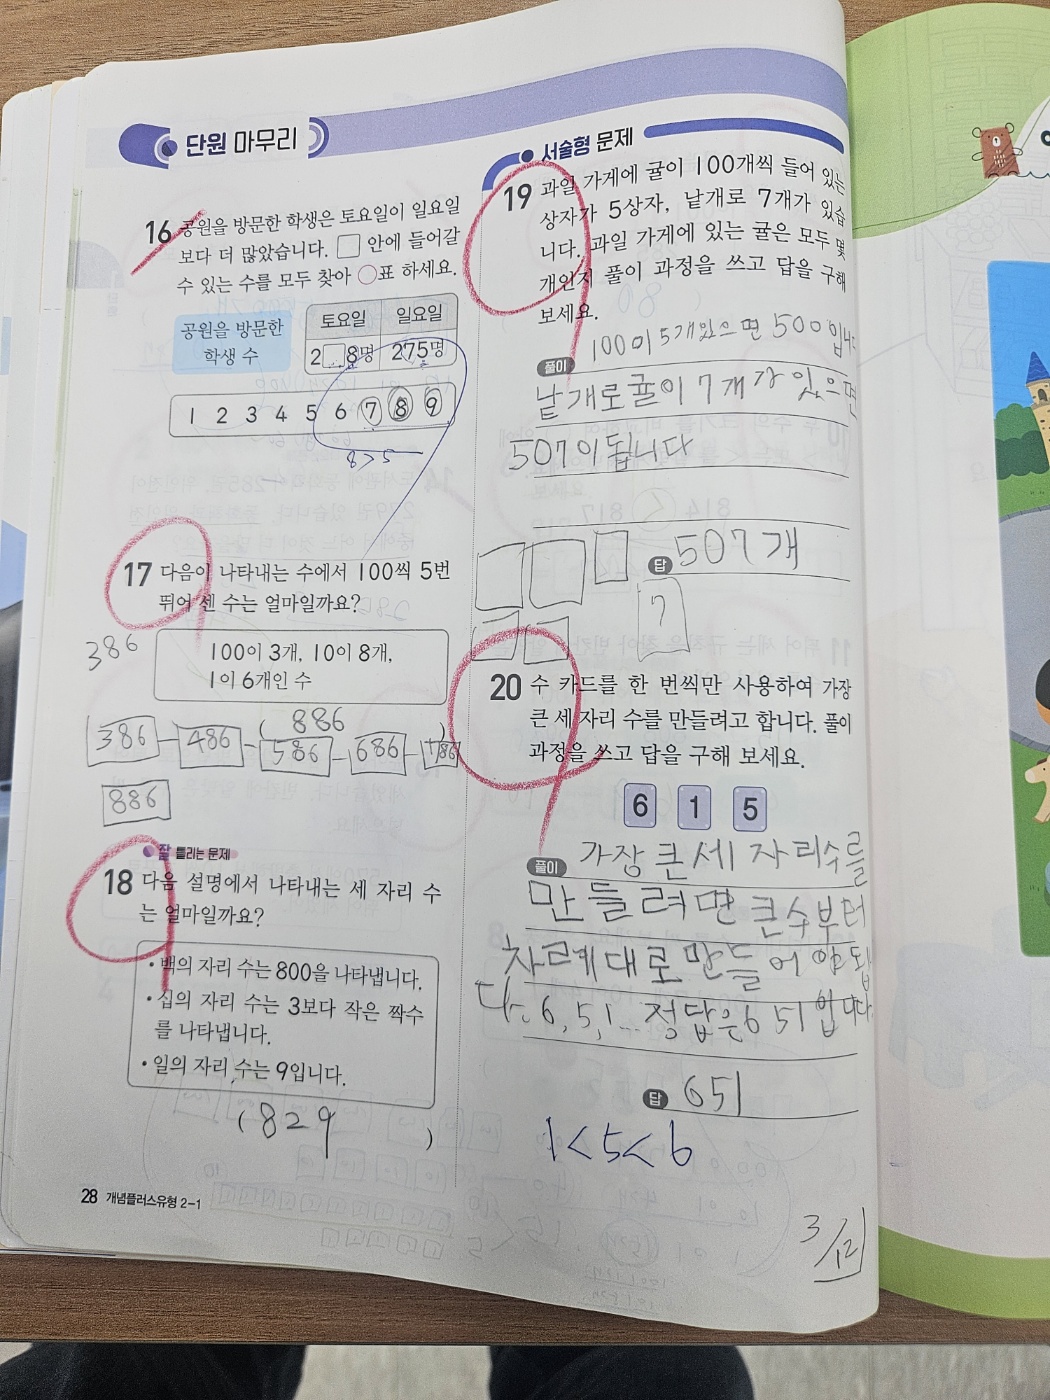 단원 마무리
16 공원을 방문한 학생은 토요일이 일요일
보다 더 많았습니다. □ 안에 들어갈
수 있는 수를 모두 찾아 ○표 하세요.
공원을 방문한
학생 수
토요일 일요일
2□8명 275명
1 2 3 4 5 6 7 8 9
8>5
17 다음이 나타내는 수에서 100씩 5번
뛰어 센 수는 얼마일까요?
386
100이 3개, 10이 8개,
1이 6개인 수
( 886 )
386 - 486 - 586 - 686 - 786
886
잘 틀리는 문제
18 다음 설명에서 나타내는 세 자리 수
는 얼마일까요?
• 백의 자리 수는 800을 나타냅니다.
• 십의 자리 수는 3보다 작은 짝수
를 나타냅니다.
• 일의 자리 수는 9입니다.
( 829 )
28 개념플러스유형 2-1
서술형 문제
19 과일 가게에 귤이 100개씩 들어 있는
상자가 5상자, 낱개로 7개가 있습
니다. 과일 가게에 있는 귤은 모두 몇
개인지 풀이 과정을 쓰고 답을 구해
보세요.
풀이 100이 5개있으면 500입니
낱개로귤이 7개가 있으면
507이됩니다
답 507개
7
20 수 카드를 한 번씩만 사용하여 가장
큰 세 자리 수를 만들려고 합니다. 풀이
과정을 쓰고 답을 구해 보세요.
6 1 5
풀이 가장 큰 세 자리수를
만들려면 큰수부터
차례대로만들어야됩
다. 6,5,1... 정답은651입니다.
답 651
1<5<6
3/12